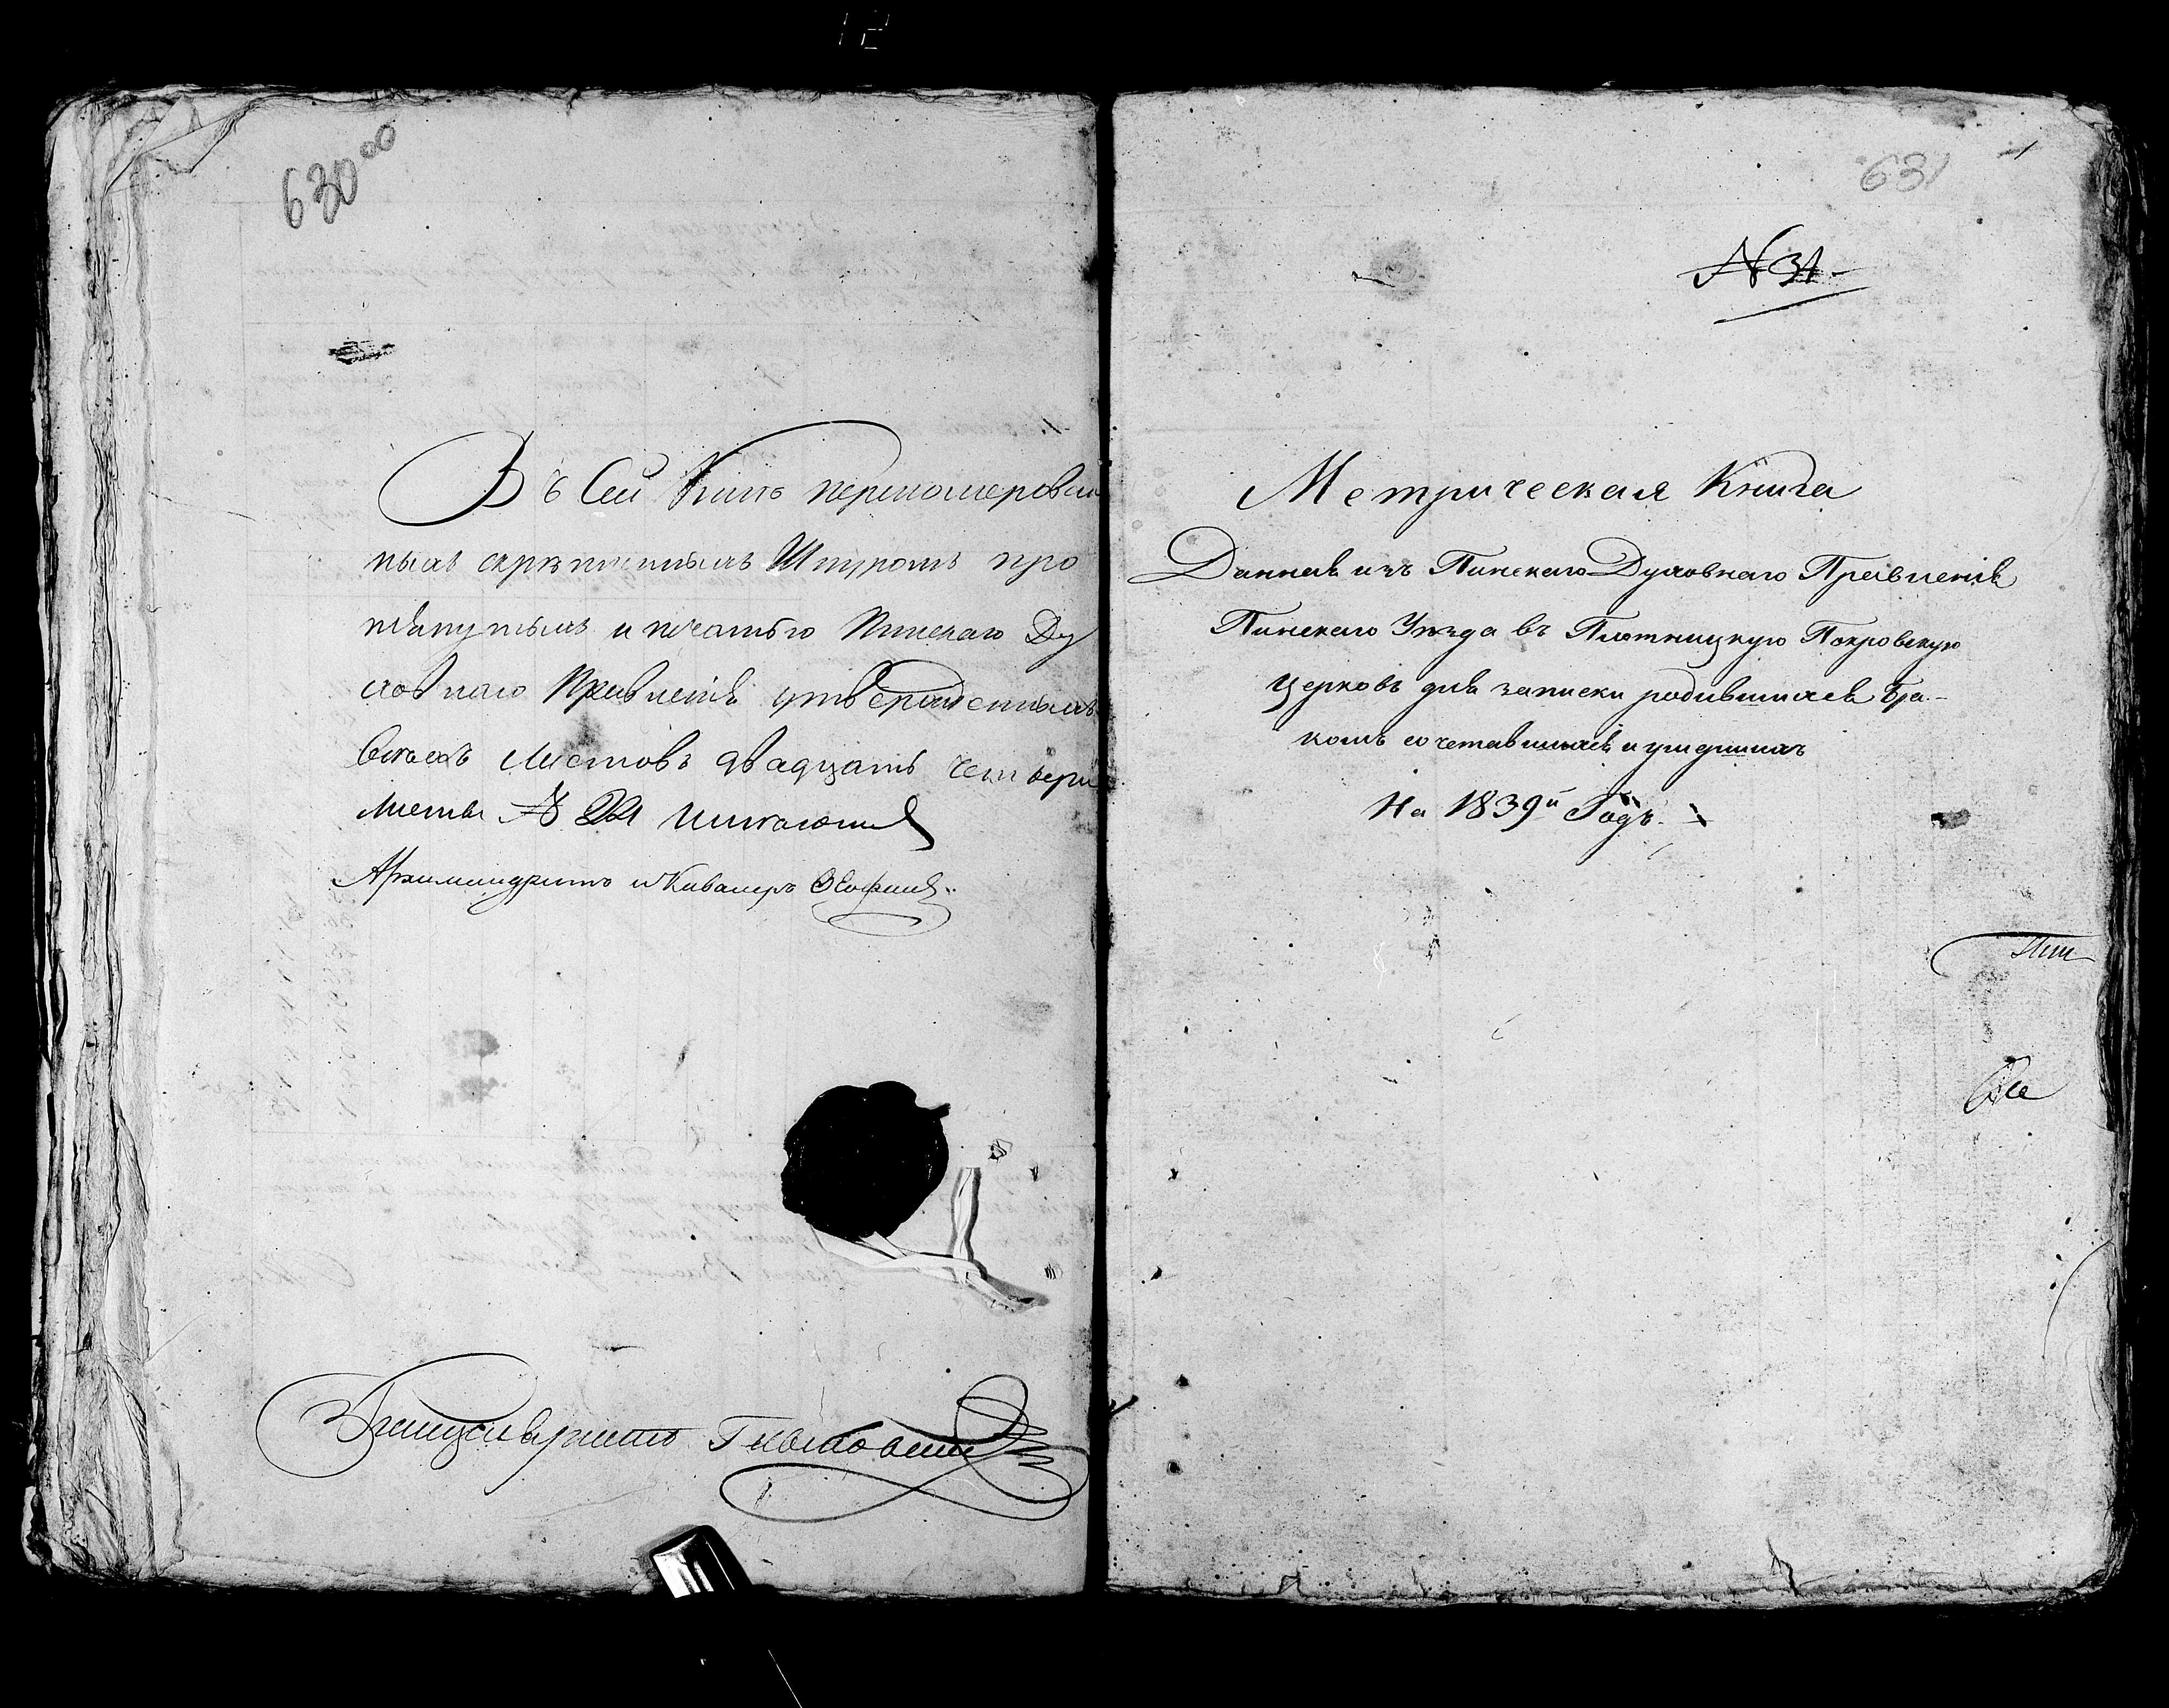 12
630 об
Въ Сей Книгѣ перномерован
ныхъ скрѣпленныхъ Шнуромъ про
тянутыхъ и печатью Пинскаго Ду
ховнаго Правленія утвержденныхъ
всѣхъ Листовъ двадцать четыри
Листы № 24 
Архимандритъ и Кавалеръ
Канцеляристъ
631
1
№ 31
Метрическая Книга
Данная изъ Пинскаго Духовнаго Правленія
Пинскаго Уѣзда въ Плотницкую Покровскую
Церковь для записки родившихся Бра-
комъ сочетавшихся и умершихъ
На 1839й Годъ.